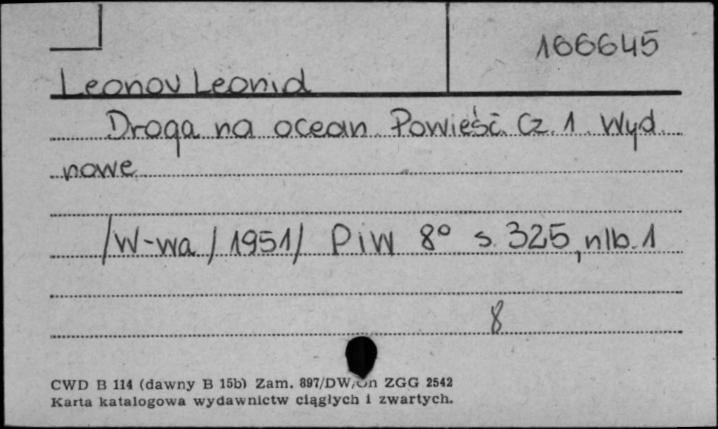 166645
Leonov Leonid
Droga na ocean. Powieść. Cz. 1. Wyd.
nowe
/W-wa / 1951/ PiW 8° s. 325, nlb. 1
8
CWD B 114 (dawny B 15b) Zam. 897/DW/On ZGG 2542
Karta katalogowa wydawnictw ciągłych i zwartych.